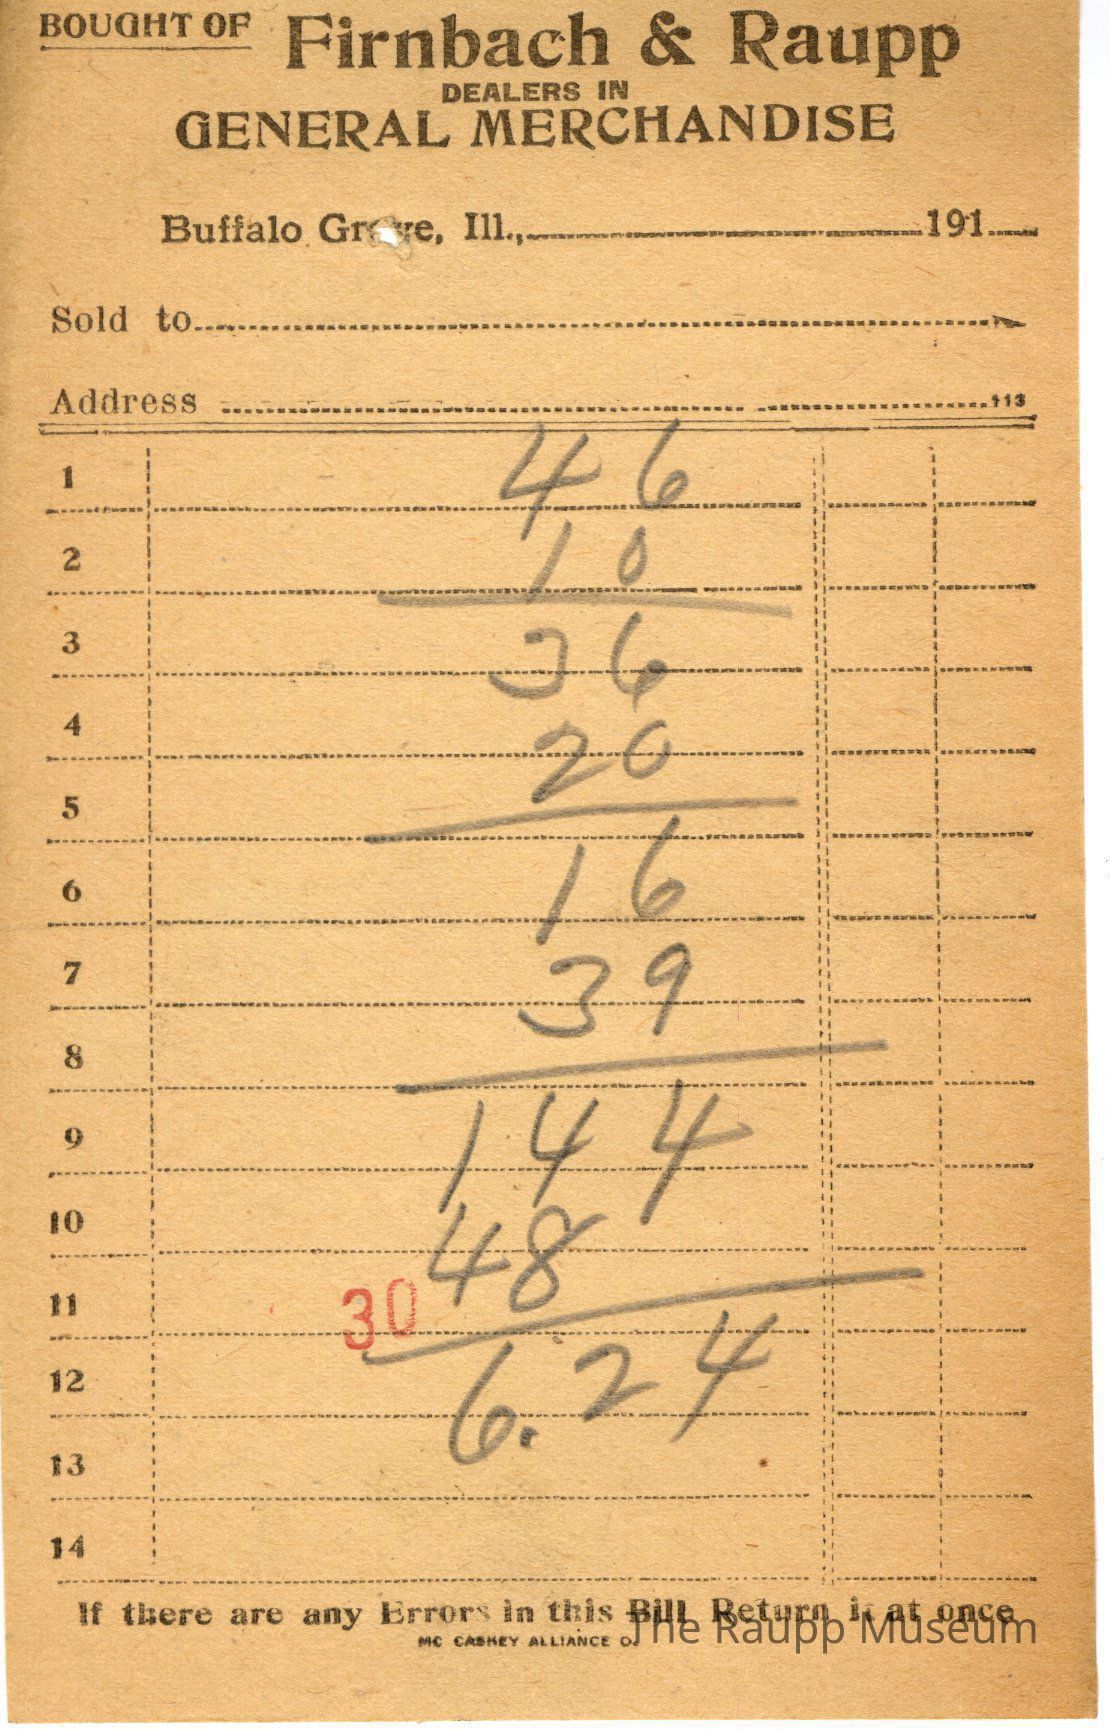 BOUGHT OF Firnbach & Raupp
DEALERS IN
GENERAL MERCHANDISE
Buffalo Grove, Ill., 191
Sold to
Address 113
1 46
2 10
3 36
4 20
5
6 16
7 39
8
9 144
10 48
11 30
12 6.24
13
14
If there are any Errors in this Bill Return it at once
MC CASKEY ALLIANCE O.
The Raupp Museum